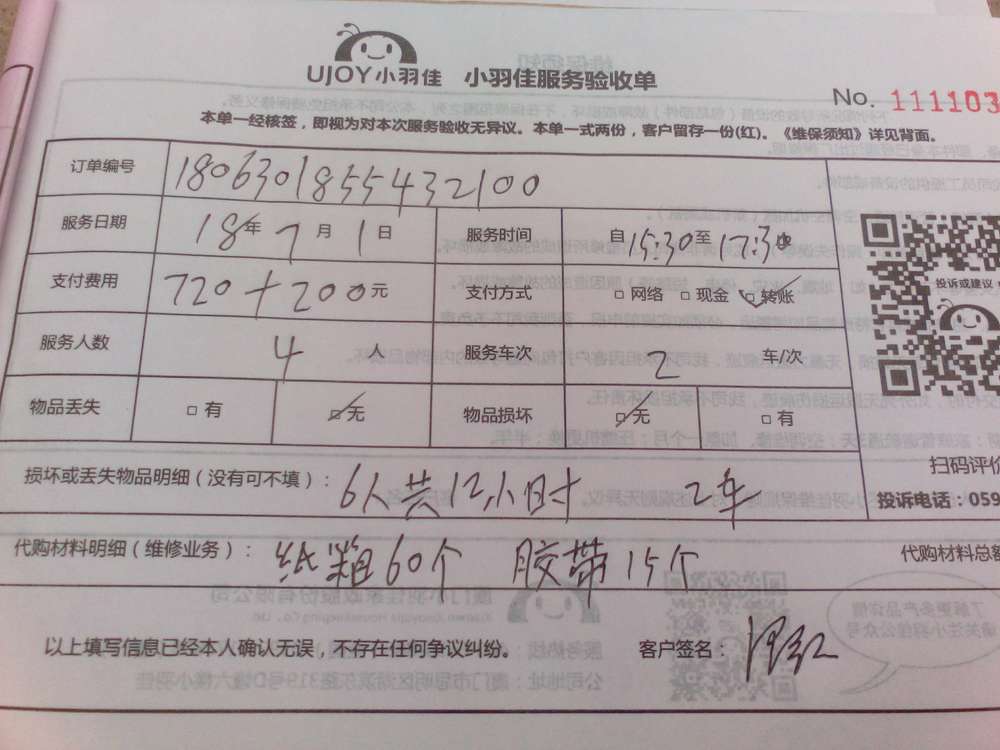 UJOY小羽佳 小羽佳服务验收单
No. 111103
本单一经核签，即视为对本次服务验收无异议。本单一式两份，客户留存一份(红)。《维保须知》详见背面。
订单编号 1806301855432100
服务日期 18年7月1日 服务时间 自15:30至17:30
投诉或建议
支付费用 720+200元 支付方式 □网络 □现金 ☑转账
服务人数 4人 服务车次 2车/次
物品丢失 □有 ☑无 物品损坏 ☑无 □有
扫码评价
损坏或丢失物品明细（没有可不填）： 6人共12小时 2车
投诉电话：059
代购材料明细（维修业务）： 纸箱60个 胶带15个 代购材料总额
以上填写信息已经本人确认无误，不存在任何争议纠纷。 客户签名：